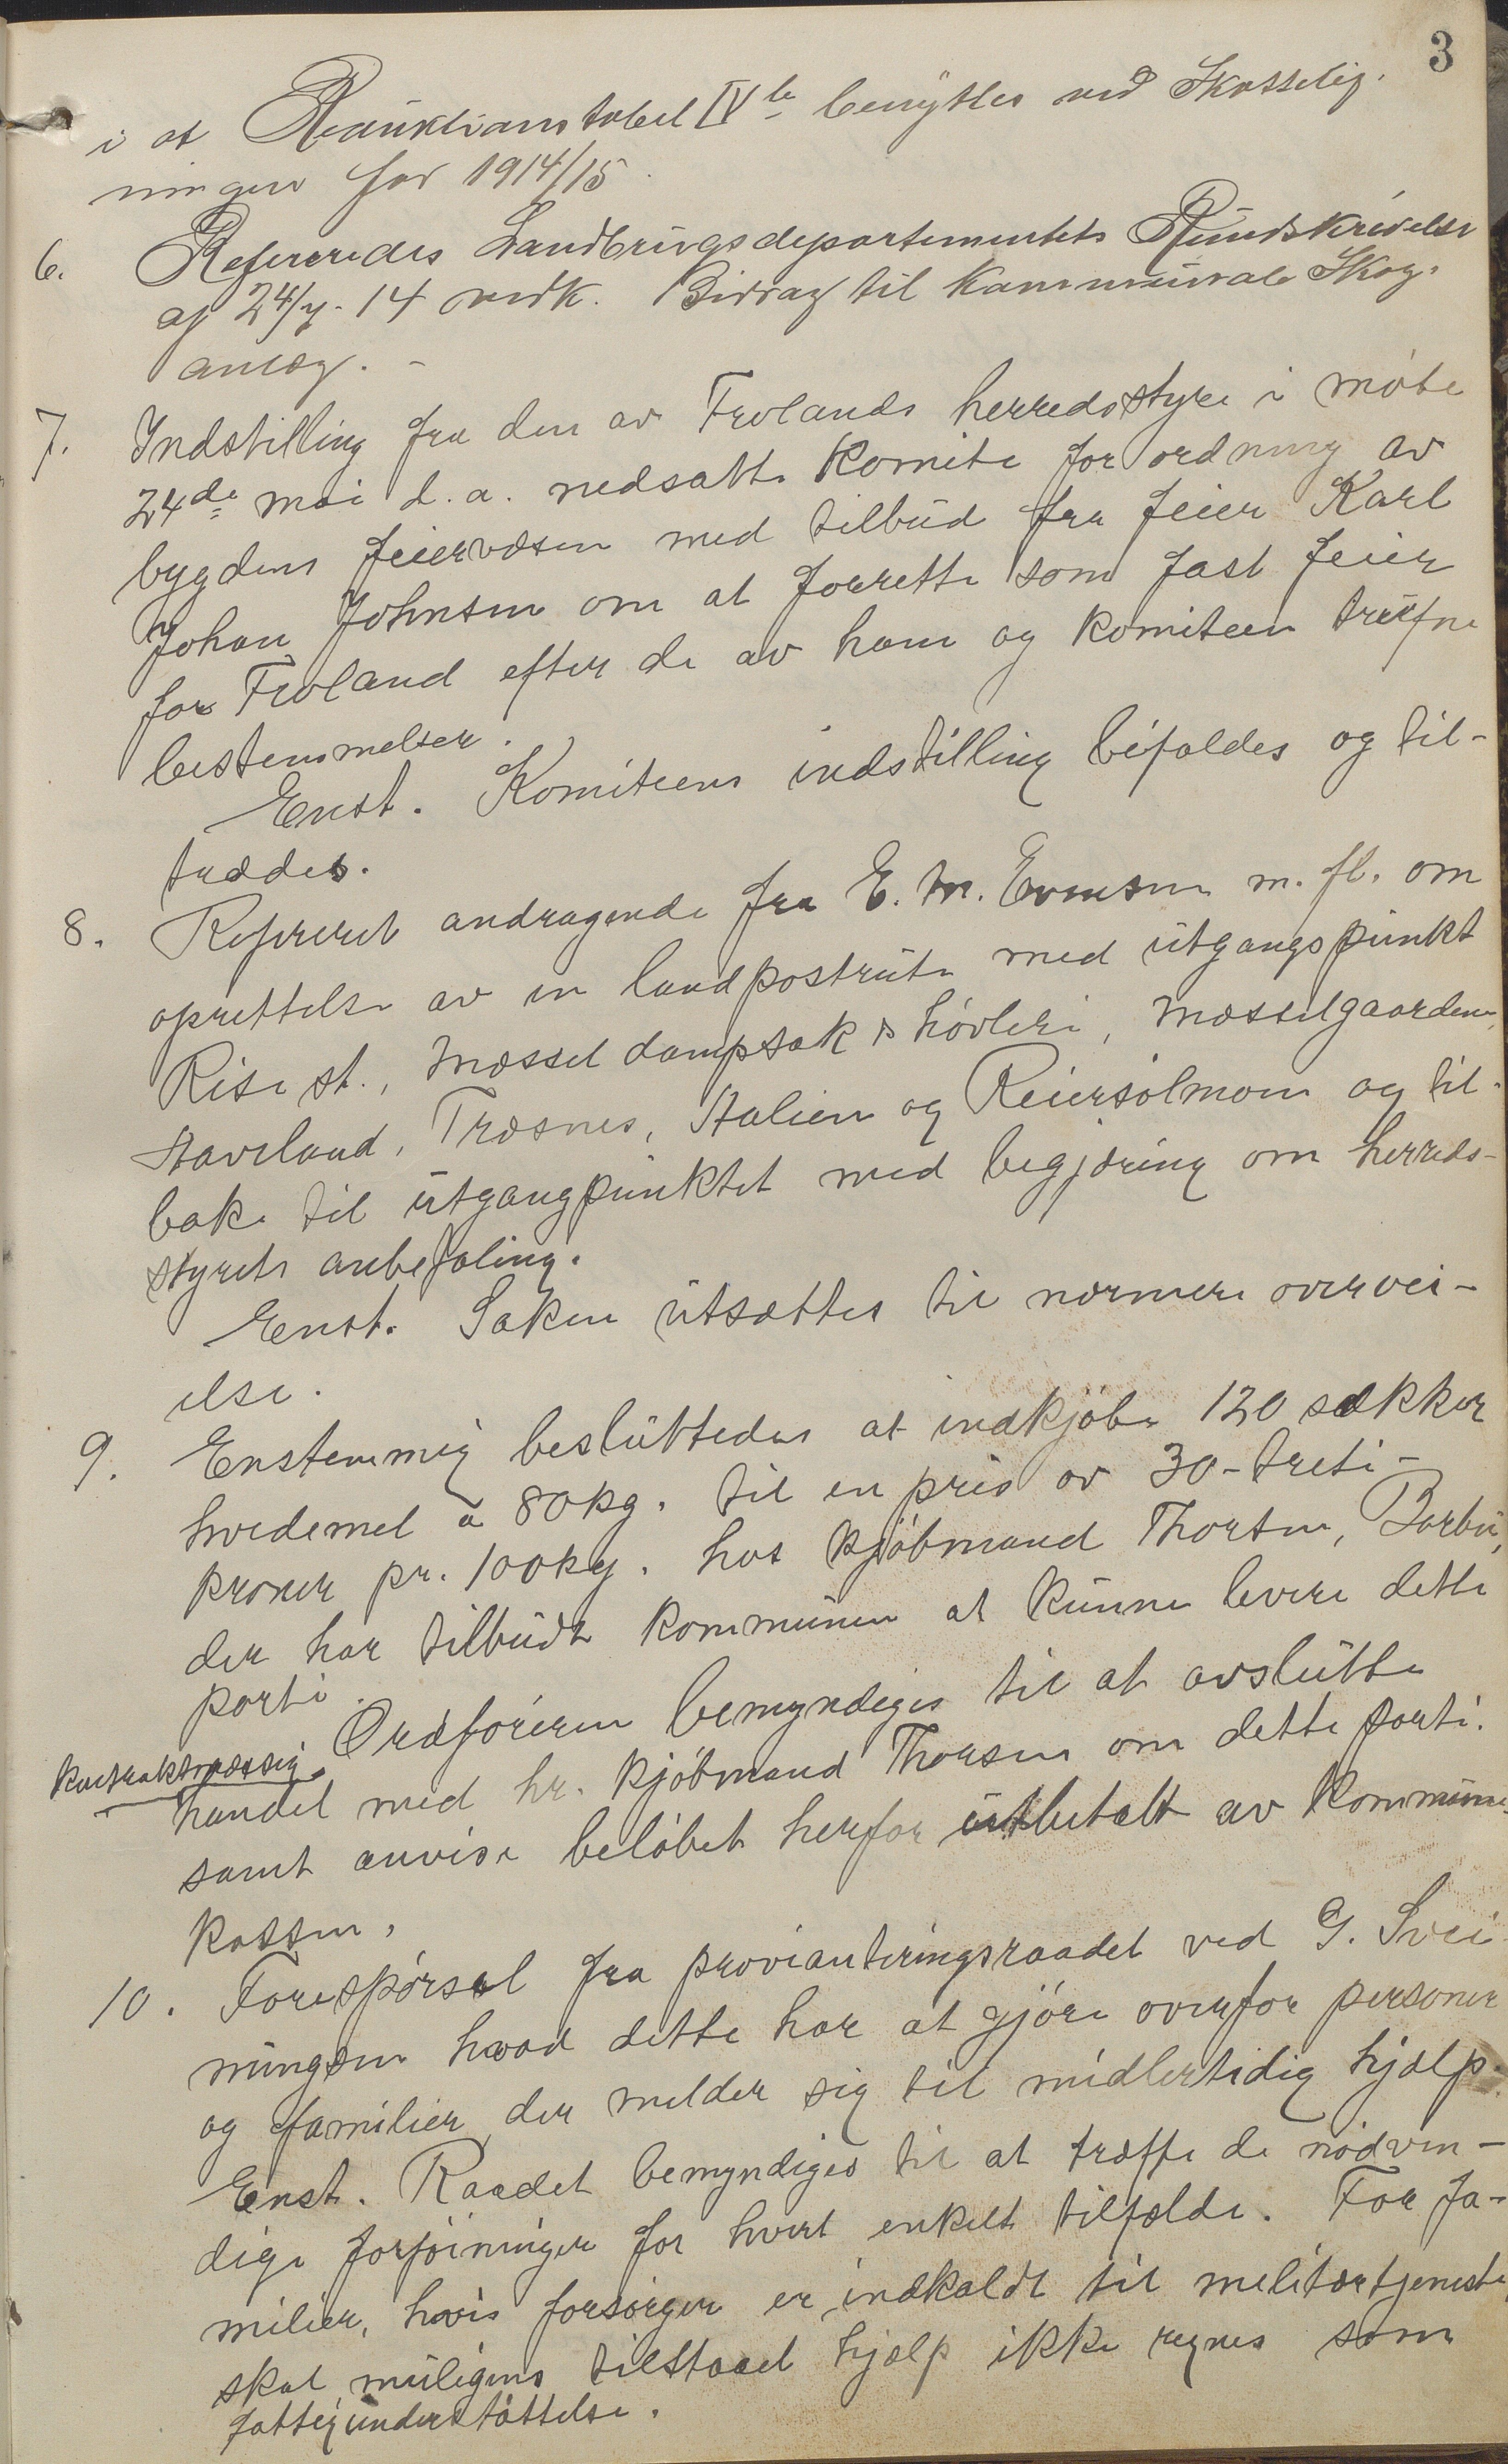 3
i at Reduktionstabel IV b benyttes ved Skattelig-
ningen for 1914/15.
6. Refereredes Landbrugsdepartementets Rundskrivelse
af 24/7-14 vedk. Bidrag til kommunale Skog-
anlæg. -
7. Indstilling fra den av Frolands herredsstyre i møte
24de mai d.a. nedsatte komite for ordning av
bygdens feiervæsen med tilbud fra feier Karl
Johan Johnsen om at forrette som fast feier
for Froland efter de av ham og komiteen trufne
bestemmelser.
Enst. Komiteens indstilling bifaldes og til-
træddes.
8. Refereret andragende fra E. M. Evensen m. fl. om
oprettelse av en landpostrute med utgangspunkt
Rise st., Mæssel dampsak & høvleri, Mæsselgaardene,
Staveland, Træsnes, Stalien og Reiersølmoen og til-
bake til utgangpunktet med begjæring om herreds-
styrets anbefaling.
Enst. Saken utsættes til nærmere overvei-
else.
9. Enstemmig besluttedes at indkjøbe 120 sækker
hvedemel a 80 kg. til en pris av 30-treti-
kroner pr. 100 kg. hos kjøbmand Thorsen, Barbu,
der har tilbudt kommunen at kunne levere dette
parti. Ordføreren bemyndiges til at avslutte
kontraktmæssig
handel med hr. kjøbmand Thorsen om dette parti.
samt anvise beløbet herfor utbetalt av kommune-
kassen.
10. Forespørsel fra provianteringsraadet ved G. Svei-
nungsen hvad dette har at gjøre overfor personer
og familier, der melder sig til midlertidig hjælp.
Enst. Raadet bemyndiges til at træffe de nødven-
dige forføininger for hvert enkelt tilfælde. For fa-
milier, hvis forsørger er indkaldt til militærtjeneste,
skal muligens tilstaaet hjælp ikke regnes som
fattigunderstøttelse.